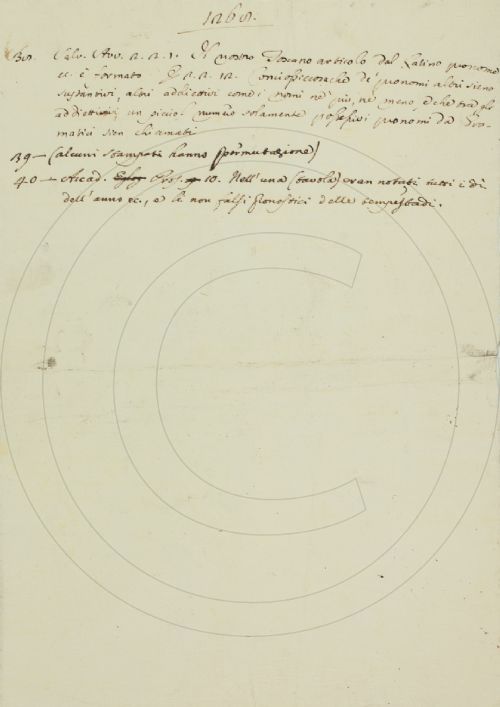 1268.
38. Salv. Avv. 2. 2. 1. Il nostro Toscano articolo dal Latino pronome
ec. è formato. E 2. 2. 12. Conciosiecosachè de' pronomi altri sieno
sustantivi, altri addiettivi come i nomi nè più, nè meno, e che tra gli
addiettivi un piccol numero solamente possessivi pronomi da Gra-
matici sien chiamati
39 — (alcuni stampati hanno (permutazione)
40 — Accad. Pros. 10. Nell'una (tavola) eran notati tutti i dì
dell'anno ec., e le non falsi pronostici delle tempestadi.